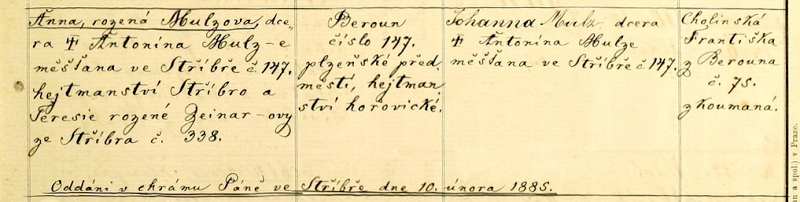 Anna, rozená Mulzova, dce-
ra ☩ Antonína Mulz-e
měšťana ve Stříbře č. 147.
hejtmanství Stříbro a
Teresie rozené Zeinar-ovy
ze Stříbra č. 338.
Beroun
číslo 147.
plzeňské před-
městí, hejtman-
ství hořovické.
Johanna Mulz- dcera
☩ Antonína Mulze
měšťana ve Stříbře č. 147.
Cholinská
Františka
z Berouna
č. 75.
zkoumaná.
Oddáni v chrámu Páně ve Stříbře dne 10. února 1885.
a spol.) v Praze.